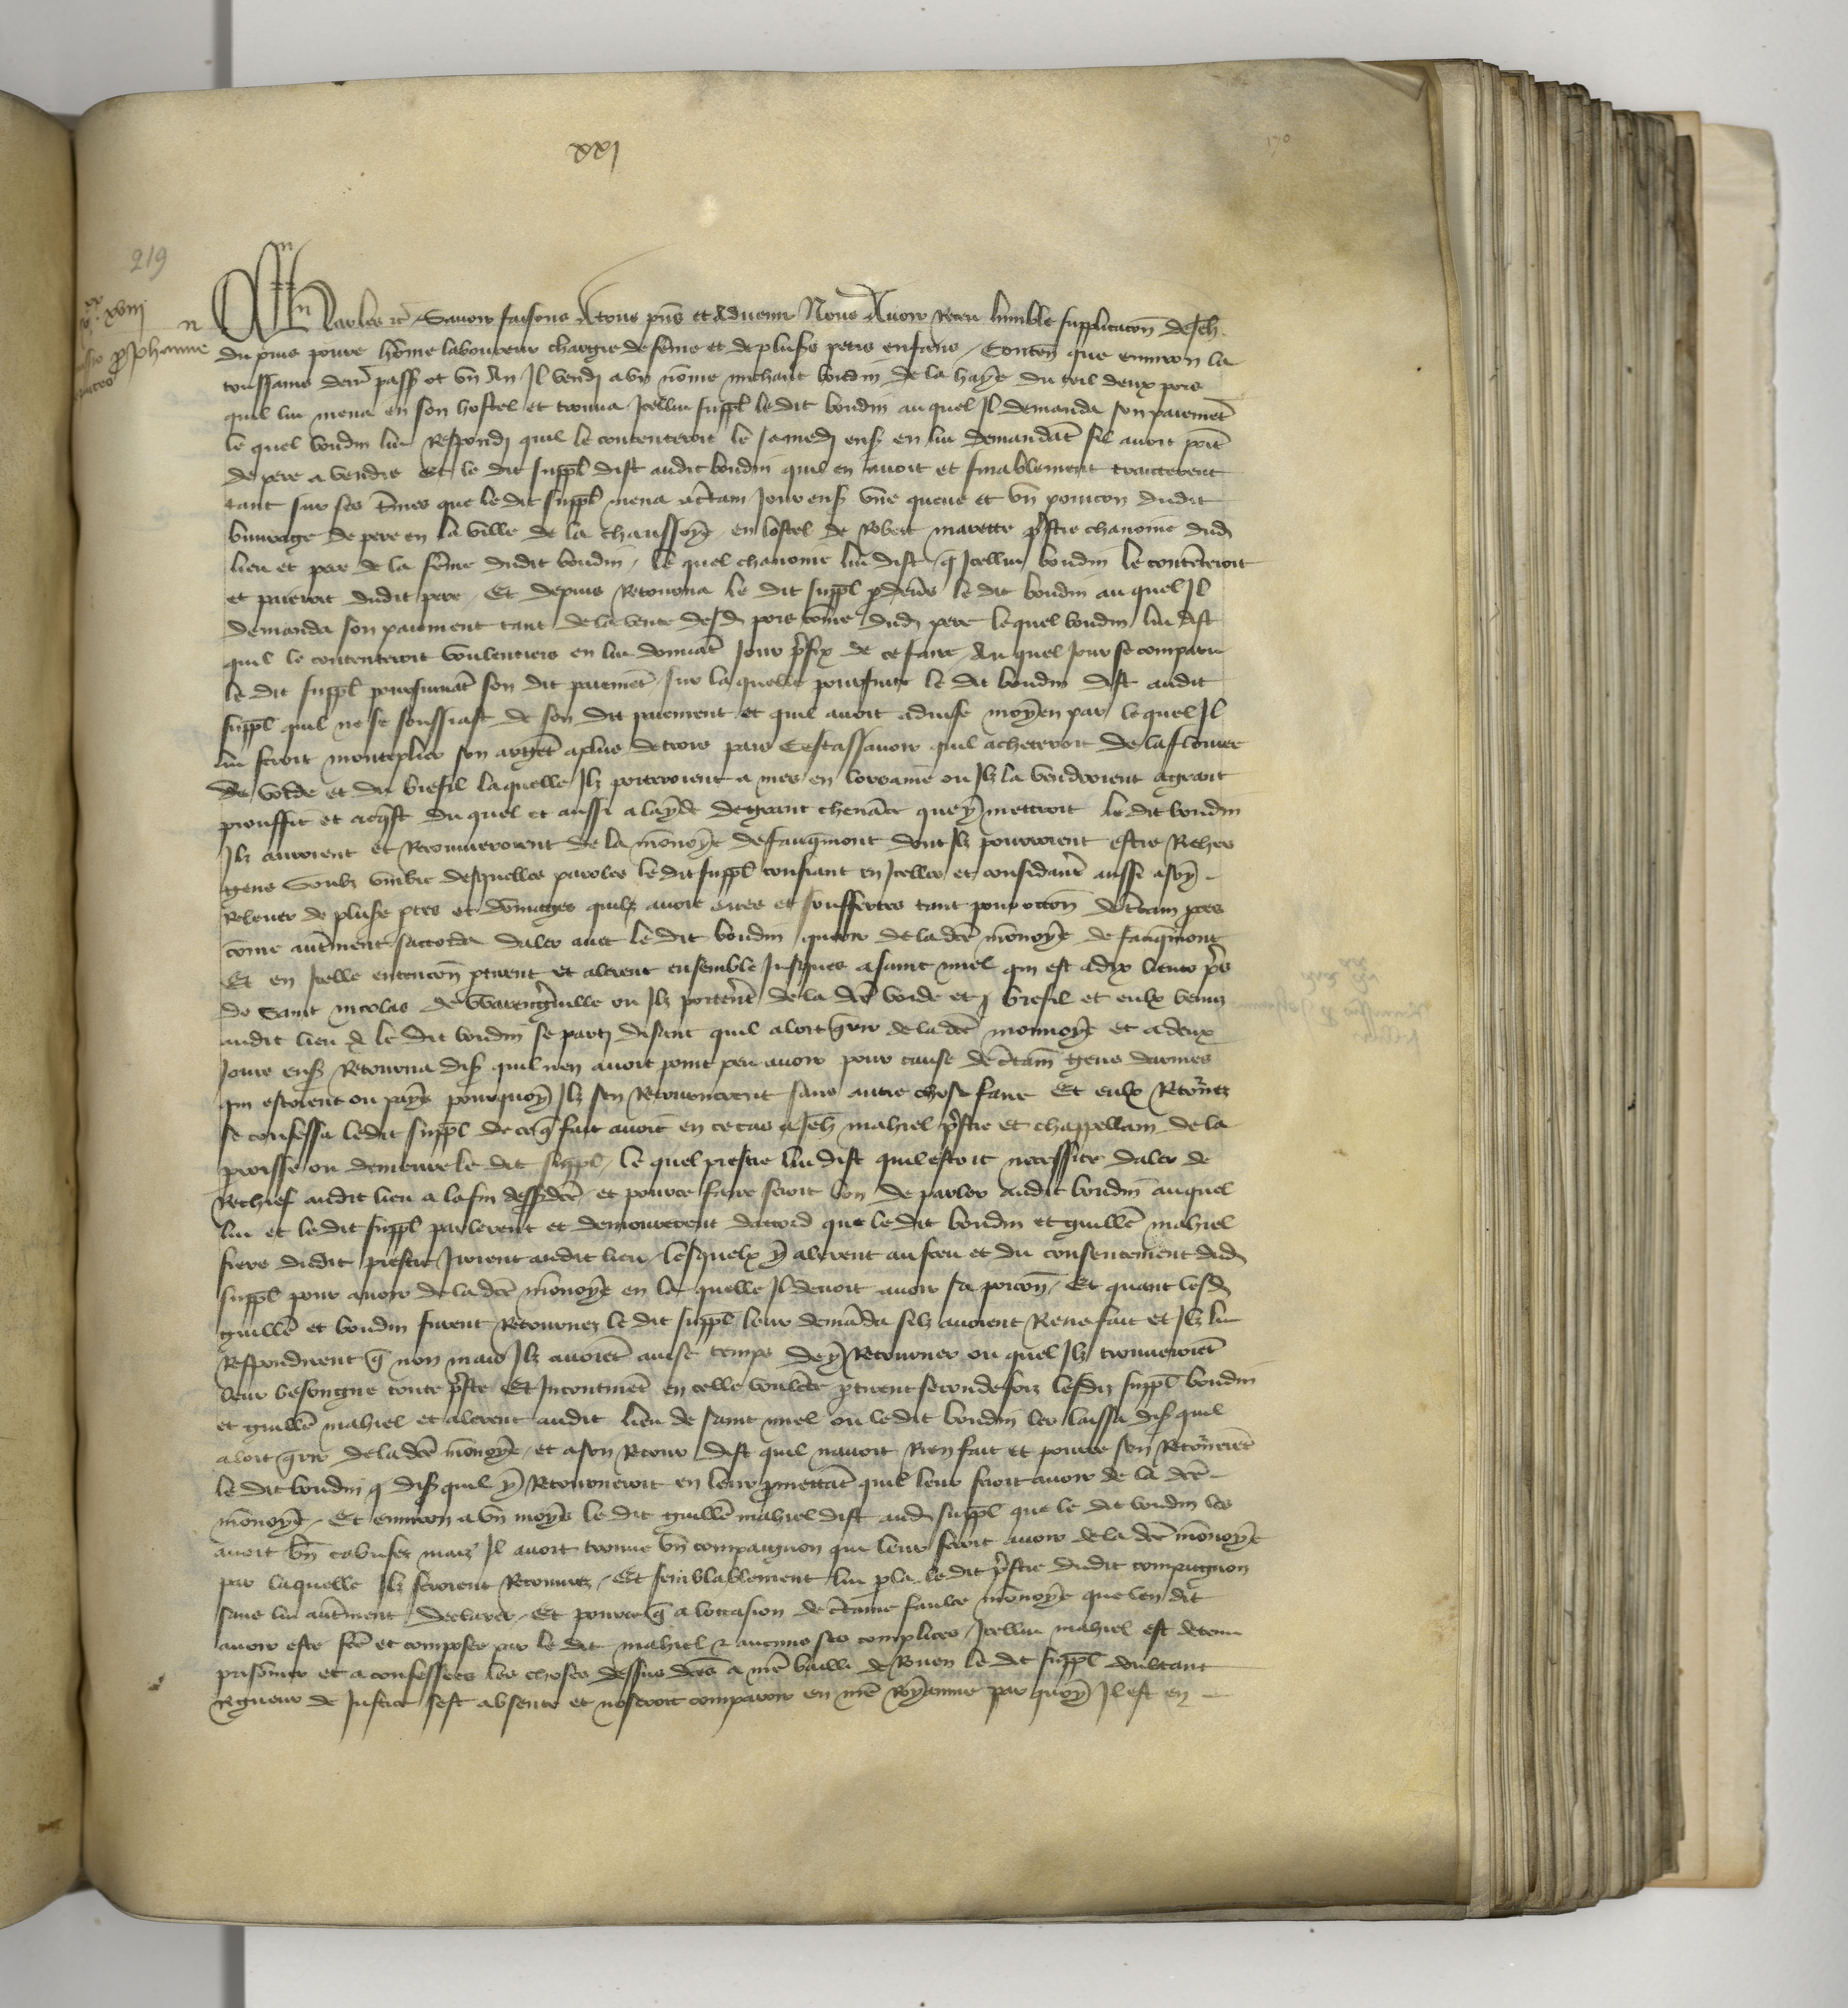 xxj
170
219
xviij
n
Johanne
Charles etc Savoir faisons A tous pns et Advenir Nous Avoir Receu lumble supplicacon de Jeh
du povre home laboureur chargie de feme et de pluss petis enfans / Conten que environ la
toussains derr pass ot un An Il vendj a un nome michaut boudin de la haye du teil deux pors
quil lui mena en son hostel et trouva Icellui suppl le dit boudin auquel Il demanda son paiemet
le quel boudin lui Respondj quil le contenteroit le samedj ens en lui demandat sil avoit point
de pere a vendre Et le dit suppl dist audit boudin quil en avoit et finablement traicterent
tant sur ses que le dit suppl mena a ctain Jour ens une queue et un poincon dudit
buvrage de pere en la ville de la chaussoye en lostel de Robert marette pstre chanoine dud
lieu et pere de la feme dudit boudin / le quel chanoine lui dist q Icellui boudin le conteteroit
et paieroit dudit pere / Et depuis Retourna le dit suppl p devs le dit boudin au quel Il
demanda son paiement tant de la vente desd pors come dud pere lequel boudin lui dist
quil le contenteroit voulentiers en lui donnat Jour pfix de ce faire / Au quel Jour se comparu
le dit suppl poursuivat son dit paiemet / sur la quelle poursuite le dit boudin dist audit
suppl quil ne se soussiast de son dit paiement et quil avoit advise moyen par le quel Il
lui feroit monteplier son arget a plus de trois pars Cestassavoir quil acheteroit de la flouree
de voide et du bresil laquelle Ilz porteroient a mes en lorraine ou Ilz la vendroient a grant
prouffit et acqst du quel et aussi a layde de grant chevace que y mettroit le dit boudin
Ilz auroient et Recouvreroient de la monoye de fauqmont dont Ilz pourroient estre Riches
gens Soubz umbre desquelles paroles le dit suppl confiant en Icelles et considerat aussi a soy
Relever de pluss ptes et domages quilz avoit eues et souffertes tant pour occon de ctain pces
come autment saccorda daler avec le dit boudin querir de la dce monoye de fauqmont
Et en Icelle entencon ptirent et alerent ensemble Jusques a saint miel qui est a dix lieues ps
de Saint nicolas de Warengeville ou Ilz porteret de la dce voide et bresil et eulx venuz
audit lieu le dit boudin se partj disant quil aloit qrir de la dce monnoye et a deux
Jours ens Retourna dis quil nen avoit point peu avoir pour cause de ctain gens darmes
qui estoient ou pays pourquoy Ilz sen Retournerent sans autre chose faire Et eulx Retornez
se confessa ledit suppl de ce q fait avoit en ce cas a Jeh mahiel pstre et chappellain de la
paroisse ou demeure le dit suppl / le quel prestre lui dist quil estoit necessite daler de
Rechief audit lieu a la fin dessdce et pource faire seroit bon de parler audit boudin auquel
lui et le dit suppl parlerent et demourerent daccord que le dit boudin et guille mahiel
frere dudit prestre Iroient audit lieu / lesquelx y alerent au sceu et du consentement dud
suppl pour avoir de la dce monoye en la quelle Il devoit avoir sa porcon / Et quant lesd
guille et boudin furent Retournez le dit suppl leur demada silz avoient Riens fait et Ilz lui
Respondirent q non mais Ilz avoiet avise temps de y Retourner ou quel Ilz trouveroiet
leur besongne toute pste Et Incontinet en celle voulete ptirent seconde foiz lesdiz suppl boudin
et guille mahiel et alerent audit lieu de saint miel ou ledit boudin les laissa dis quil
aloit qrir de la dce monoye / et a son Retour dist quil navoit Rien fait et pource sen Retorneret
le dit boudin q dis quil y Retourneroit en leur pmettat quil leur feroit avoir de la dce
monoye / Et environ a un moys le dit guille mahiel dist aud suppl que le dit boudin les
avoit bn cabusez mais Il avoit trouve un compaignon qui leur feroit avoir de la dce monoye
par laquelle Ilz seroient Recouvrez / Et semblablement lui pla le dit pstre dudit compaignon
sans lui autment declarer / Et pource q a loccasion de ctaine faulce monoye que len dit
avoir este fce et composee par le dit mahiel et aucuns ses complices / Icellui mahiel est detenu
prisonier et a confessees les choses dessus dces a nre bailli de Rouen le dit suppl doubtant
Rigueur de Justice sest absente et noseroit comparoir en nre Royaume par quoy Il est en